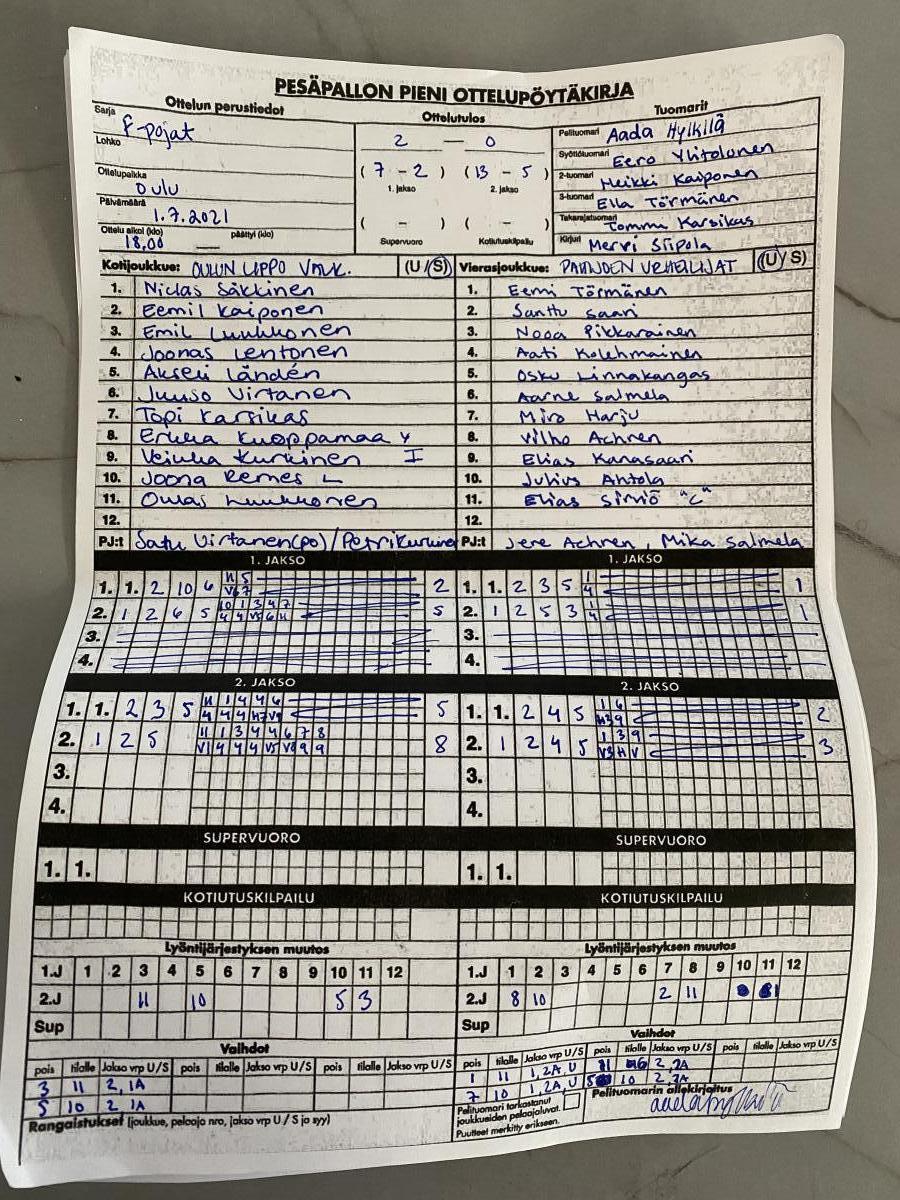 PESÄPALLON PIENI OTTELUPÖYTÄKIRJA
Ottelun perustiedot
Sarja F-pojat
Lohko
Ottelupaikka OULU
Päivämäärä 1.7.2021
Ottelu alkoi (klo) 18,00 päättyi (klo)
Ottelutulos
2 — 0
(7 - 2) (13 - 5)
1. jakso 2. jakso
( - ) ( - )
Supervuoro Kotiutuskilpailu
Tuomarit
Pelituomari Aada Hylkilä
Syöttötuomari Eero Ylitolonen
2-tuomari Heikki Kaiponen
3-tuomari Ella Törmänen
Takarajatuomari Tommi Karsikas
Kirjuri Mervi Siipola
Kotijoukkue: OULUN LIPPO VALK. (U/S)
1. Niclas Säkkinen
2. Eemil Kaiponen
3. Emil Luukkonen
4. Joonas Lentonen
5. Akseli Ländén
6. Juuso Virtanen
7. Topi Karsikas
8. Erkka Kuoppamaa Y
9. Veikka Kurkinen I
10. Joona Remes L
11. Oulas Luukkonen
12.
PJ:t Satu Virtanen(po)/Petri Kurkinen
Vierasjoukkue: PATTIJOEN URHEILIJAT (U/S)
1. Eemi Törmänen
2. Santtu Saari
3. Nooa Pikkarainen
4. Aati Kolehmainen
5. Osku Linnakangas
6. Aarne Salmela
7. Miro Harju
8. Vilho Achren
9. Elias Kanasaari
10. Julius Ahtola
11. Elias Sirniö "C"
12.
PJ:t Jere Achren, Mika Salmela
1. JAKSO
1. 1. 2 10 6 H 5 2
V6 7
2. 1 2 6 5 10 1 3 4 7 5
4 4 V5 6 H
3.
4.
1. JAKSO
1. 1. 2 3 5 1 1
4
2. 1 2 5 3 1 1
4
3.
4.
2. JAKSO
1. 1. 2 3 5 H 1 4 4 6 5
4 4 4 H7 V9
2. 1 2 5 11 1 3 4 4 6 7 8 8
V1 4 4 4 V5 V8 9 9
3.
4.
2. JAKSO
1. 1. 2 4 5 1 6 2
H3 9
2. 1 2 4 5 1 3 9 3
V3 H V
3.
4.
SUPERVUORO
1. 1.
SUPERVUORO
1. 1.
KOTIUTUSKILPAILU
KOTIUTUSKILPAILU
Lyöntijärjestyksen muutos
1.J 1 2 3 4 5 6 7 8 9 10 11 12
2.J 11 10 5 3
Sup
Lyöntijärjestyksen muutos
1.J 1 2 3 4 5 6 7 8 9 10 11 12
2.J 8 10 2 11 1
Sup
Vaihdot
pois tilalle Jakso vrp U/S pois tilalle Jakso vrp U/S pois tilalle Jakso vrp U/S
3 11 2, 1A
5 10 2 1A
Rangaistukset (joukkue, pelaaja nro, jakso vrp U/S ja syy)
Vaihdot
pois tilalle Jakso vrp U/S pois tilalle Jakso vrp U/S pois tilalle Jakso vrp U/S
1 11 1,2A,U 11 6 2,2A
7 10 1,2A,U 5 10 2,2A
Pelituomari tarkastanut joukkueiden pelaajaluvat.
Puutteet merkitty erikseen.
Pelituomarin allekirjoitus